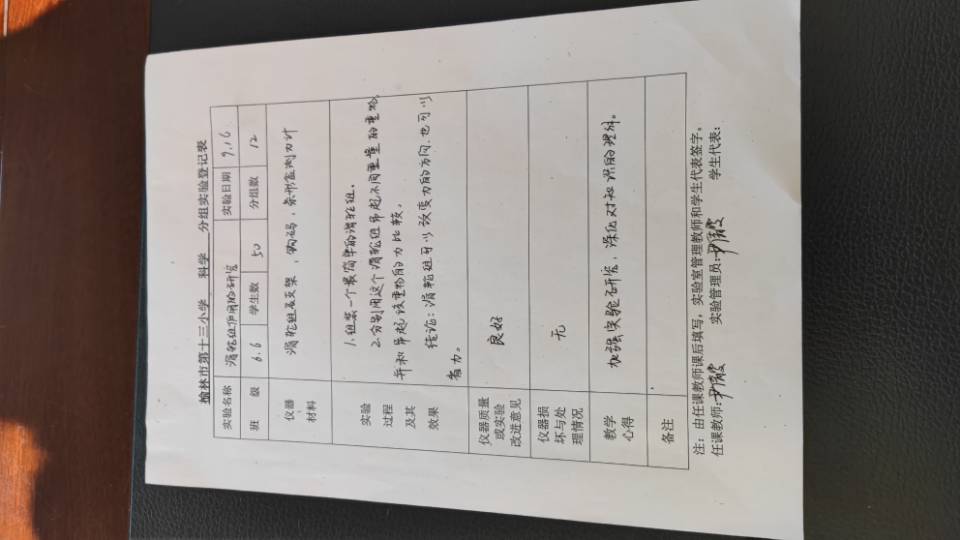 榆林市第十三小学 科学 分组实验登记表
实验名称 滑轮组作用的研究 实验日期 9.16
班级 6.6 学生数 50 分组数 12
仪器材料 滑轮组及支架，钩码，条形盒测力计
实验过程及其效果
1.组装一个最简单的滑轮组。
2.分别用这个滑轮组吊起不同重量的重物，
并和吊起该重物的力比较。
结论：滑轮组可以改变力的方向，也可以
省力。
仪器质量或实验改进意见 良好
仪器损坏与处理情况 无
教学心得 加强实验研究，深化对知识的理解。
备注
注：由任课教师课后填写，实验室管理教师和学生代表签字。
任课教师： 实验管理员： 学生代表：